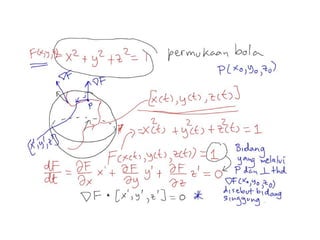 F(x,y,z) x² + y² + z² = 1
permukaan bola
P(x₀,y₀,z₀)
∇F
∇F
P
[x(t), y(t), z(t)]
[x',y',z']
= x²(t) + y²(t) + z²(t) = 1
F(x(t), y(t), z(t)) = 1
dF/dt = ∂F/∂x x' + ∂F/∂y y' + ∂F/∂z z' = 0
∇F • [x',y',z'] = 0 *
Bidang
yang melalui
P dan ⊥ thd
∇F(x₀,y₀,z₀)
disebut bidang
singgung